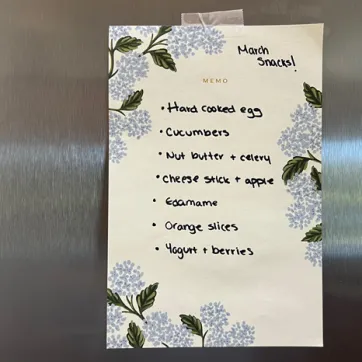 March
Snacks!
MEMO
• Hard cooked egg
• Cucumbers
• Nut butter + celery
• cheese stick + apple
• Edamame
• Orange slices
• Yogurt + berries